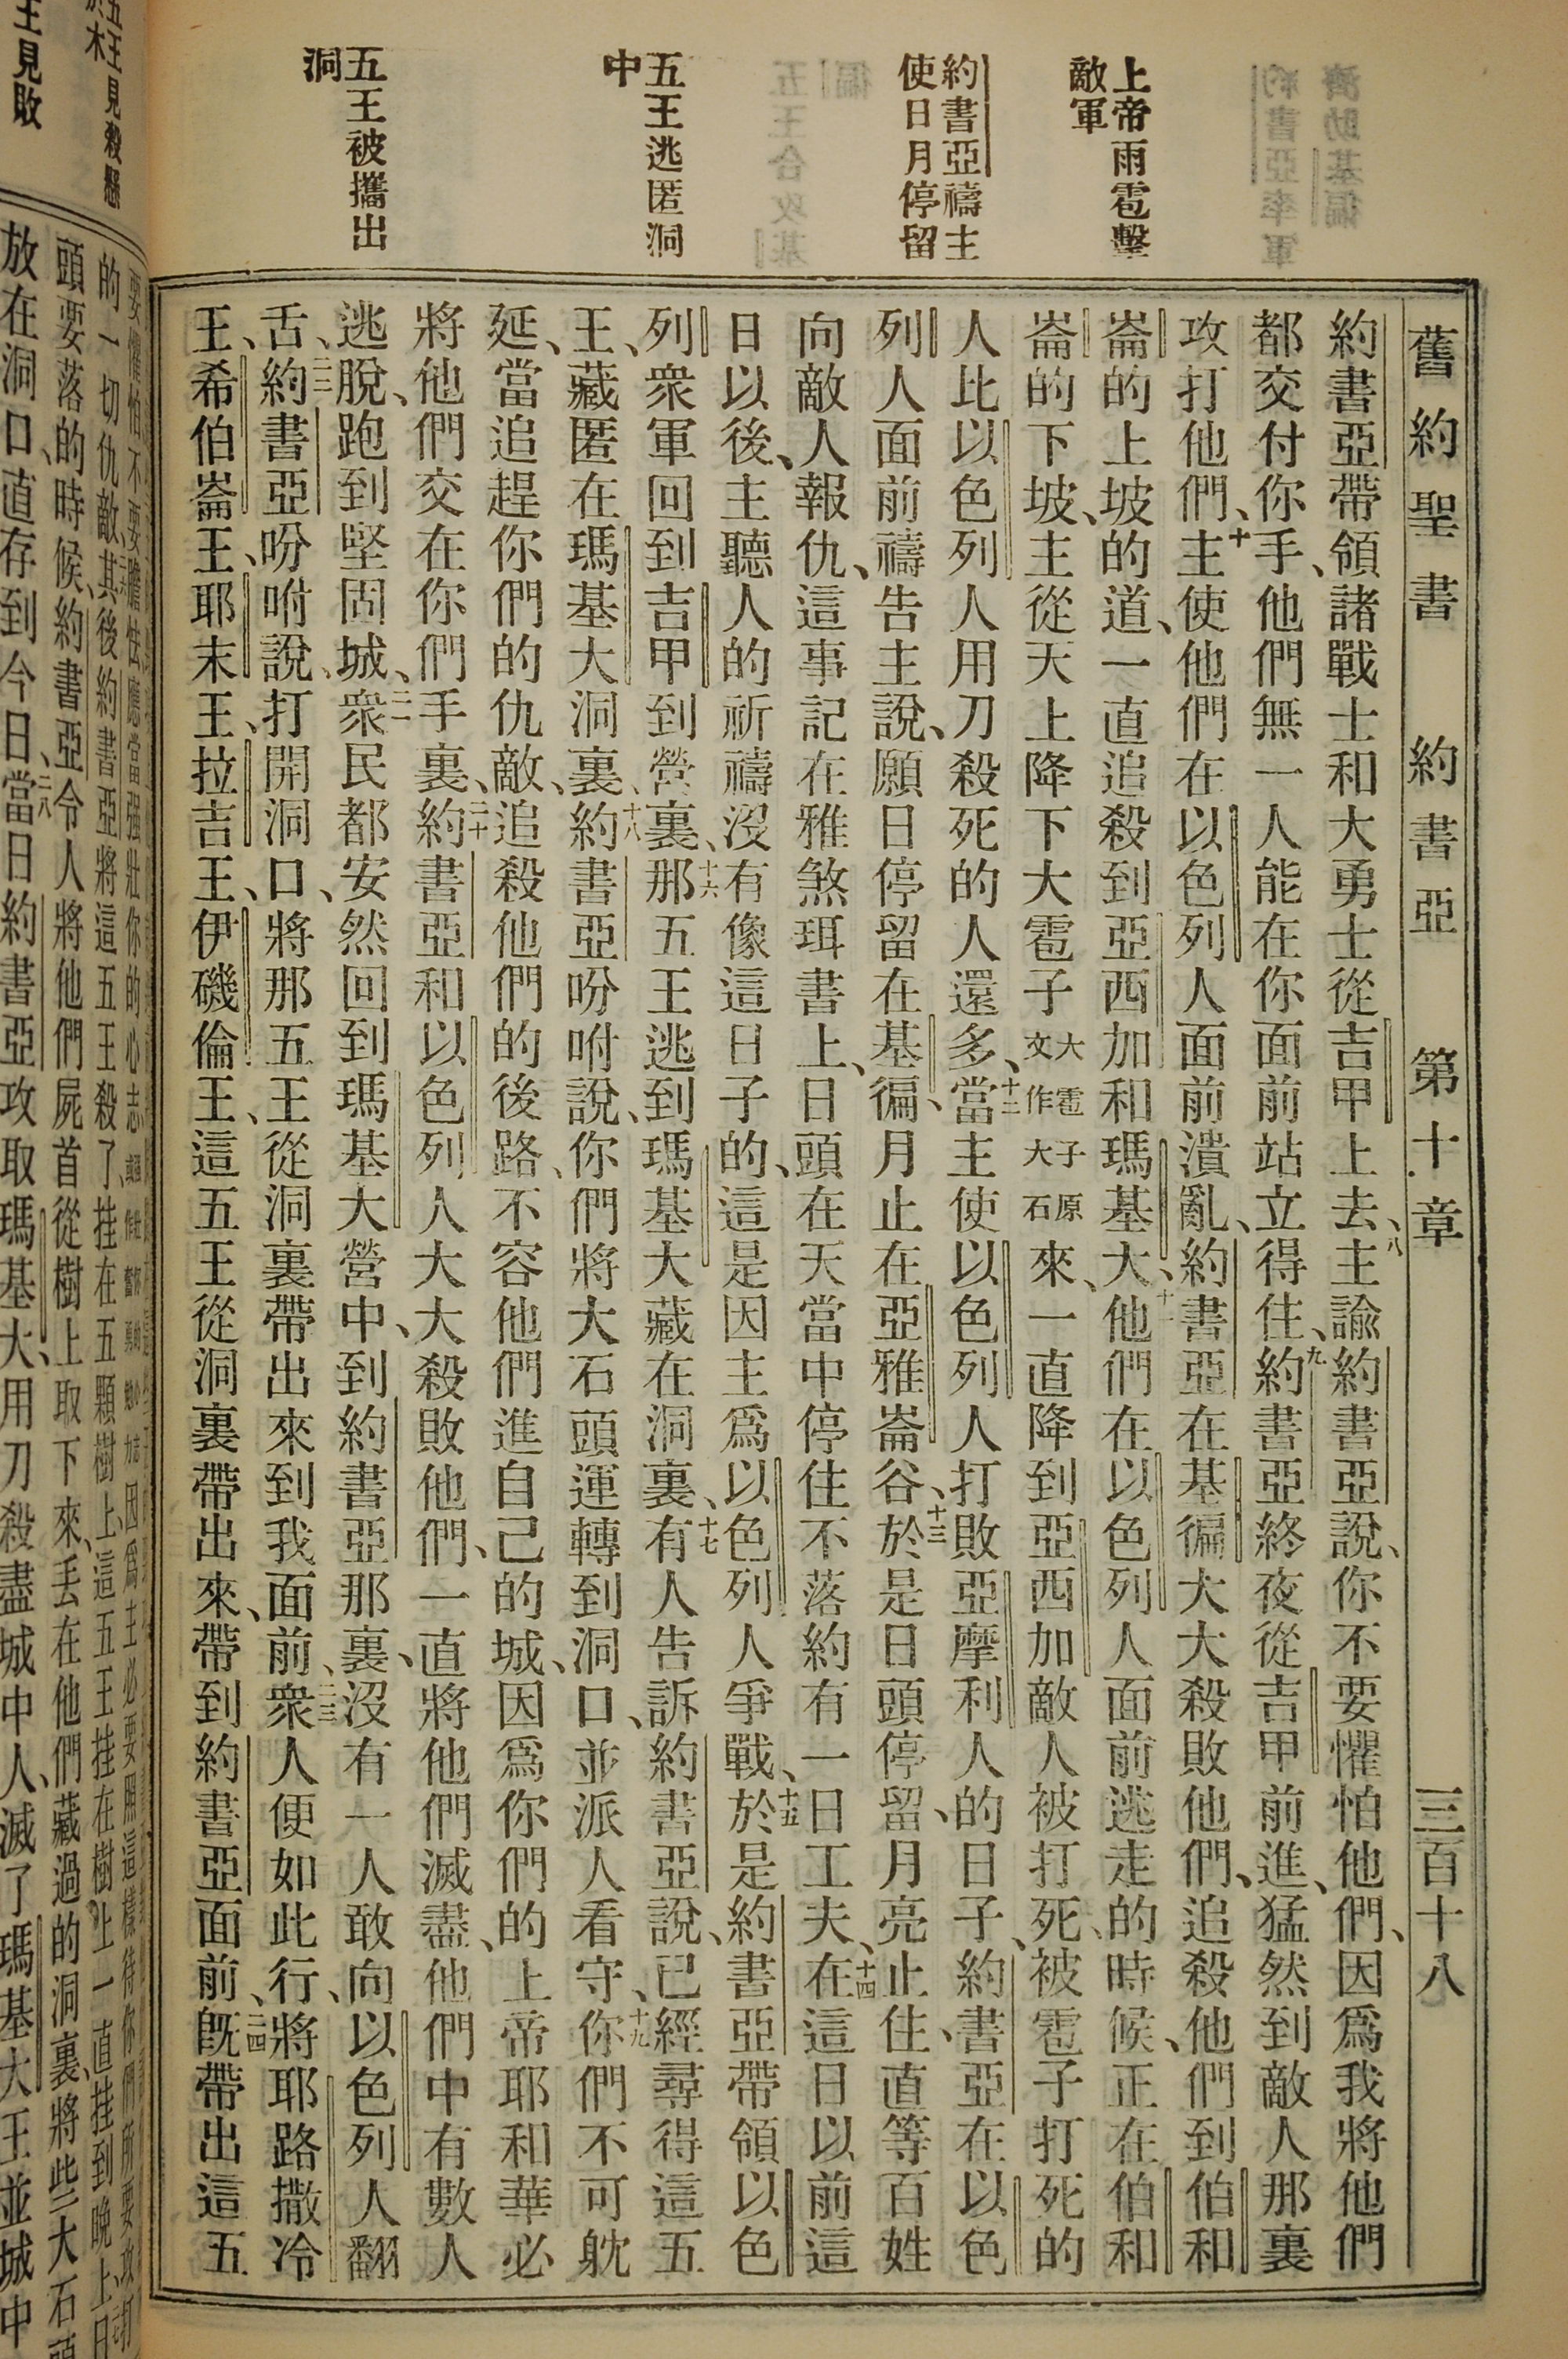 舊約聖書 約書亞 第十章 三百十八
上帝雨雹擊
敵軍
約書亞禱主
使日月停留
五王逃匿洞
中
五王被攜出
洞
約書亞帶領諸戰士和大勇士從吉甲上去、八主諭約書亞說、你不要懼怕他們、因爲我將他們
都交付你手、他們無一人能在你面前站立得住、九約書亞終夜從吉甲前進、猛然到敵人那裏
攻打他們、十主使他們在以色列人面前潰亂、約書亞在基徧大大殺敗他們、追殺他們到伯和
崙的上坡的道、一直追殺到亞西加和瑪基大、十一他們在以色列人面前逃走的時候、正在伯和
崙的下坡、主從天上降下大雹子大雹子原文作大石來、一直降到亞西加敵人被打死、被雹子打死的
人比以色列人用刀殺死的人還多、十二當主使以色列人打敗亞摩利人的日子、約書亞在以色
列人面前禱告主說、願日停留在基徧、月止在亞雅崙谷、十三於是日頭停留、月亮止住、直等百姓
向敵人報仇、這事記在雅煞珥書上、日頭在天當中停住不落約有一日工夫、十四在這日以前這
日以後、主聽人的祈禱沒有像這日子的、這是因主爲以色列人爭戰、十五於是約書亞帶領以色
列衆軍回到吉甲到營裏、十六那五王逃到瑪基大藏在洞裏、十七有人告訴約書亞說、已經尋得這五
王、藏匿在瑪基大洞裏、十八約書亞吩咐說、你們將大石頭運轉到洞口、並派人看守、十九你們不可躭
延、當追趕你們的仇敵、追殺他們的後路、不容他們進自己的城、因爲你們的上帝耶和華必
將他們交在你們手裏、二十約書亞和以色列人大大殺敗他們、一直將他們滅盡、他們中有數人
逃脫、跑到堅固城、二一衆民都安然回到瑪基大營中、到約書亞那裏、沒有一人敢向以色列人翻
舌、二二約書亞吩咐說、打開洞口、將那五王從洞裏帶出來到我面前、二三衆人便如此行、將耶路撒冷
王、希伯崙王、耶末王、拉吉王、伊磯倫王、這五王從洞裏帶出來、帶到約書亞面前、二四旣帶出這五
的一切仇敵、其後約書亞將這五王殺了、挂在五顆樹上、這五王挂在樹上一直挂到晚上、
頭要落的時候、約書亞令人將他們屍首從樹上取下來、丟在他們藏過的洞裏、將些大石
放在洞口、直存到今日、二八當日約書亞攻取瑪基大、用刀殺盡城中人、滅了瑪基大王並城中
五王見殺懸
王見敗